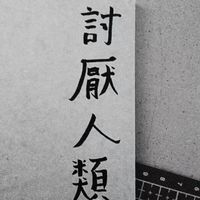 討厭人類